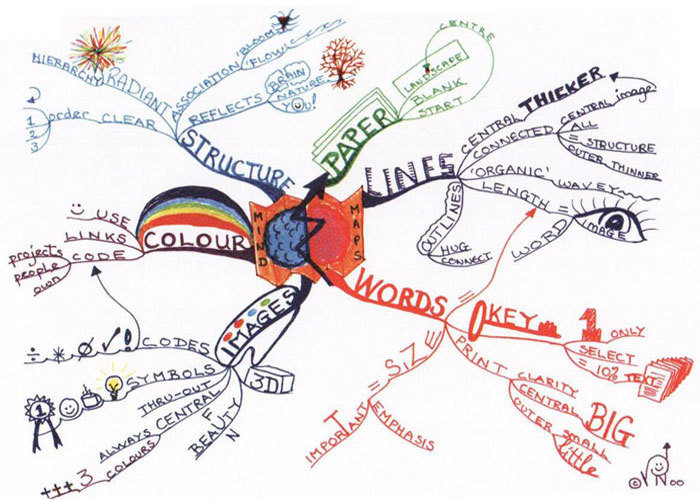 MIND
MAPS
STRUCTURE
HIERARCHY
RADIANT
ASSOCIATION
'BLOOM'
'FLOW'
REFLECTS
BRAIN
NATURE
YOU!
CLEAR
order
1
2
3
PAPER
CENTRE
LANDSCAPE
BLANK
START
LINES
CENTRAL
THICKER
CONNECTED
CENTRAL image
ALL
= STRUCTURE
OUTER THINNER
'ORGANIC'
WAVEY
LENGTH
=
WORD
IMAGE
OUTLINES
HUG
CONNECT
WORDS
=
KEY
1
ONLY
SELECT
= 10% TEXT
PRINT
CLARITY
CENTRAL
BIG
OUTER
small
little
SIZE
=
IMPORTANT
EMPHASIS
IMAGES
3D
BEAUTY
FUN
CENTRAL
ALWAYS
3
+++
COLOURS
THRU-OUT
SYMBOLS
1
CODES
÷ * Ø √ !
COLOUR
USE
LINKS
CODE
projects
people
own